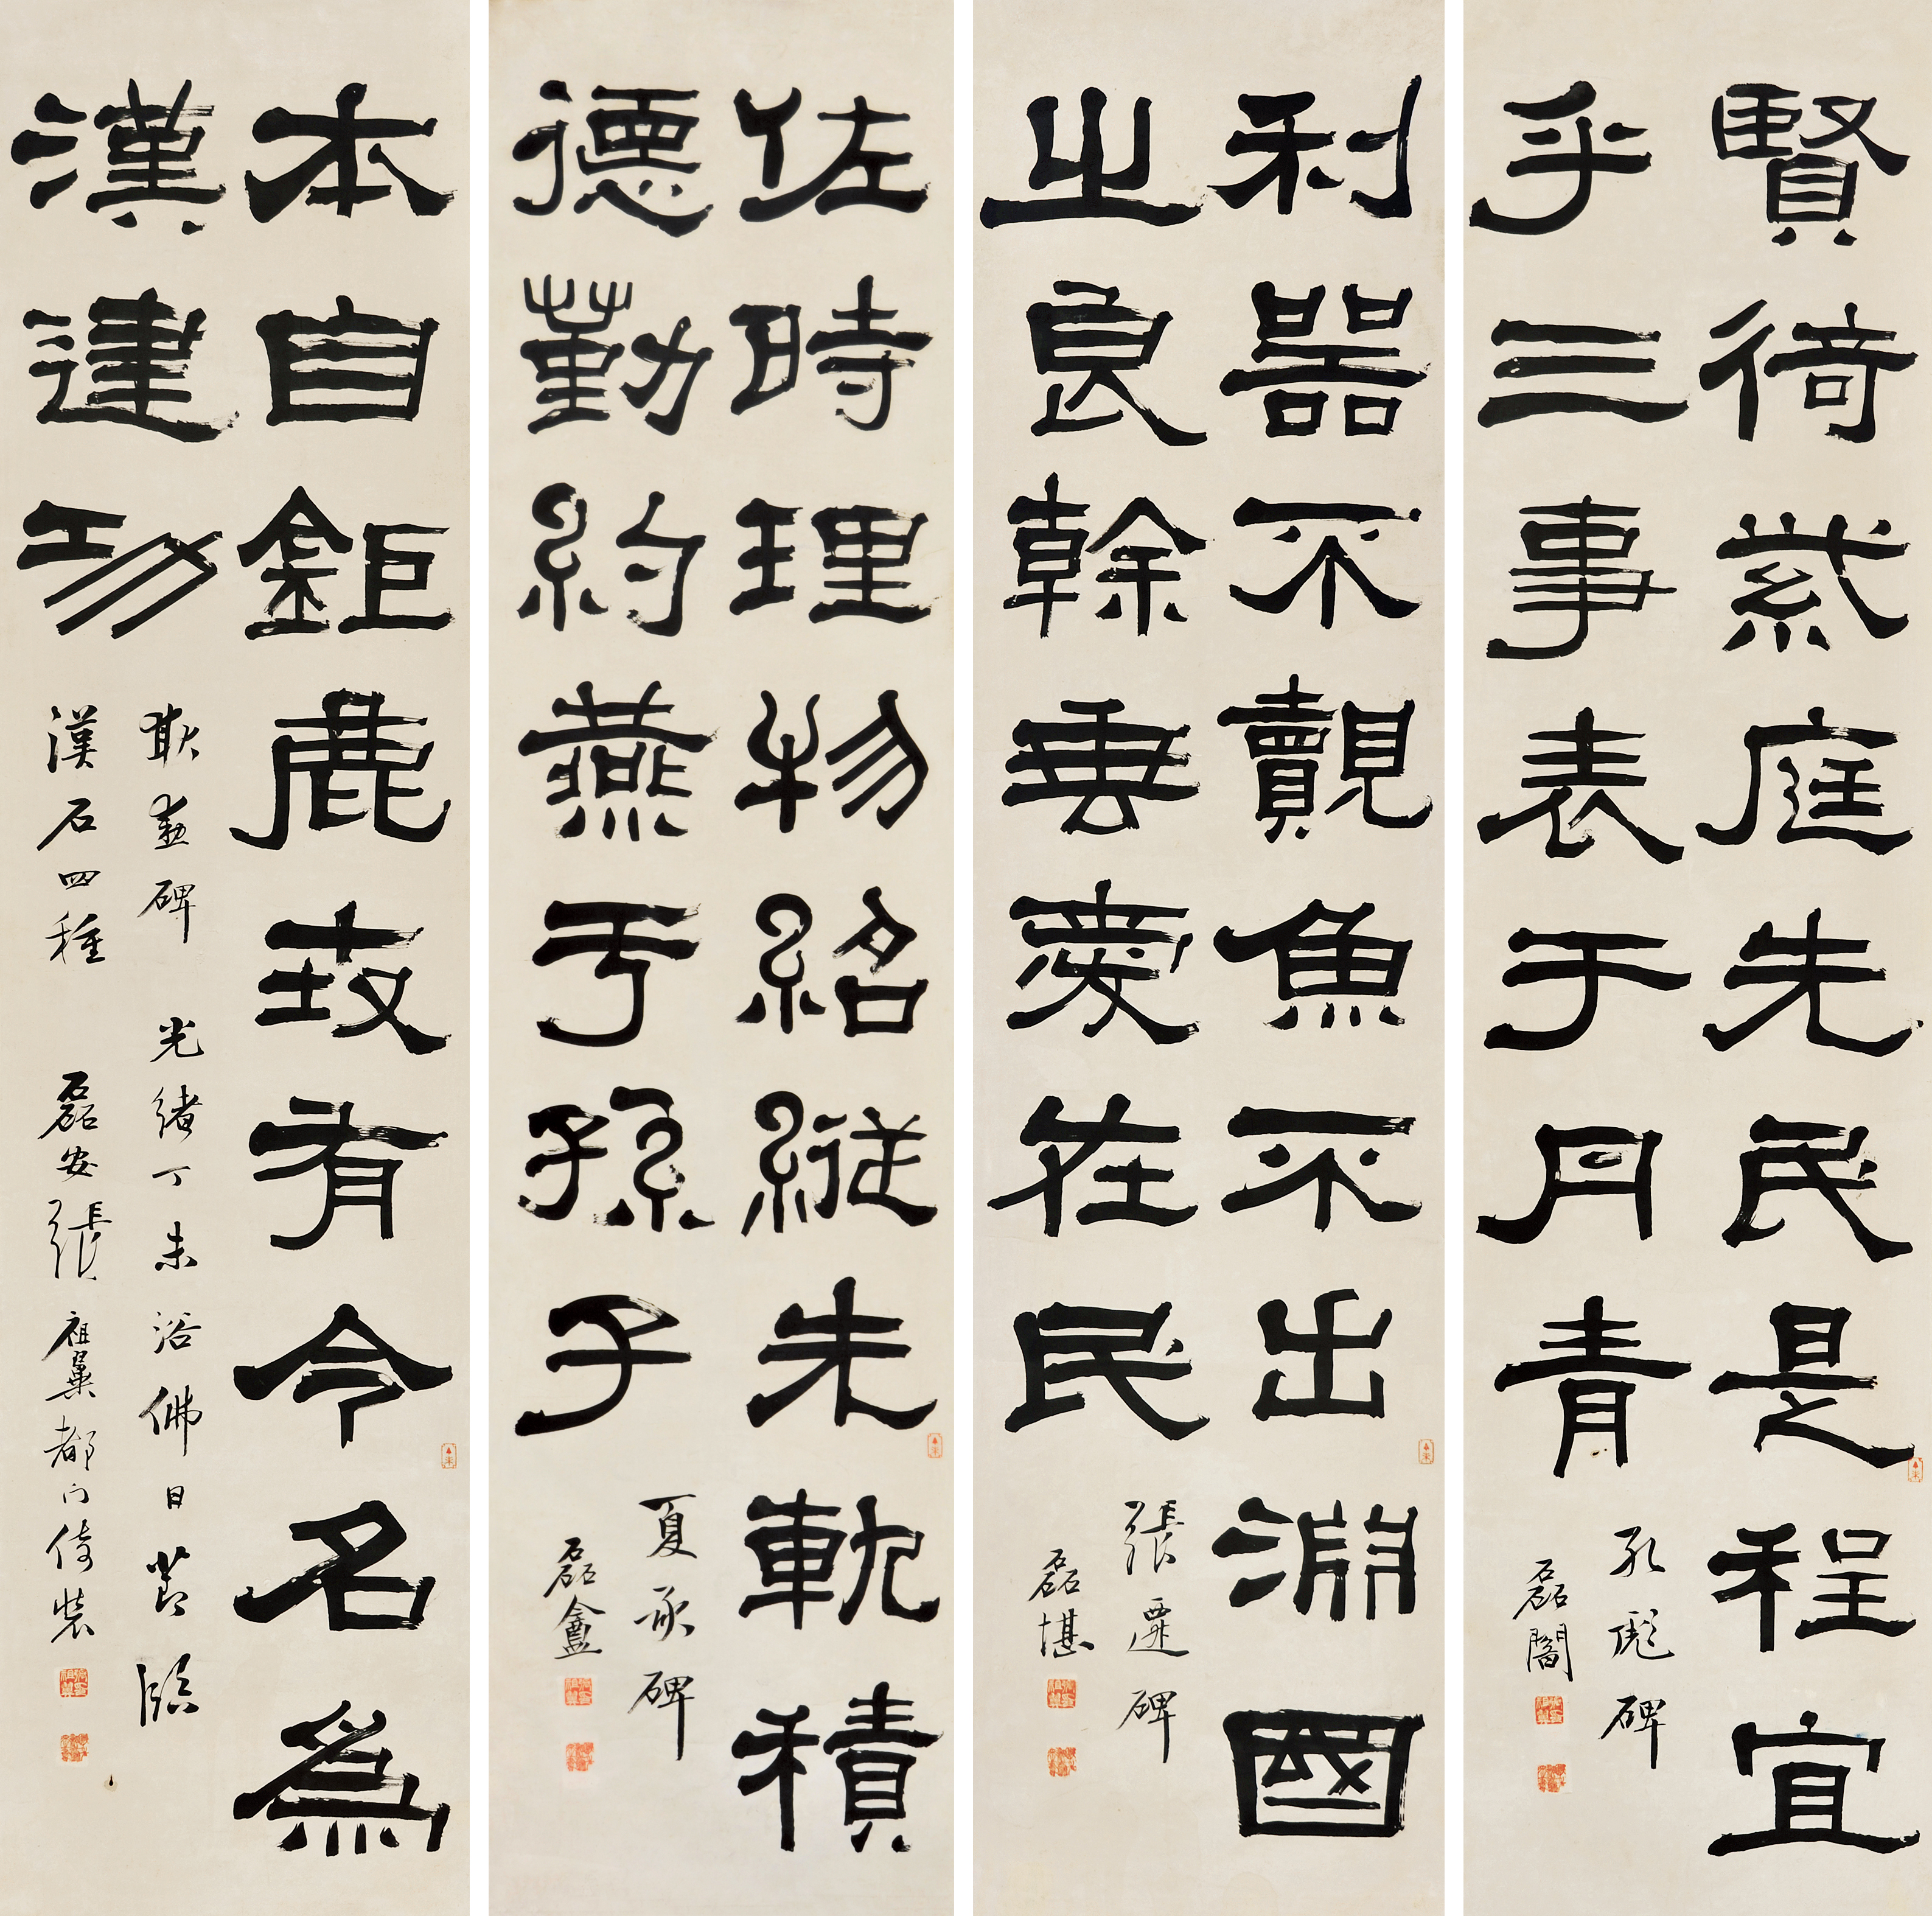 賢徛紫庭先民是程宜
乎三事表于丹青
孔彪碑
磊闇
利器不覿魚不出淵國
之良幹垂愛在民
張遷碑
磊堪
佐時理物紹縱先軌積
德勤約燕于孫子
夏承碑
磊盦
本自鉅鹿世有令名為
漢建功
耿勳碑 光緒丁未浴佛日節臨
漢石四種 磊安張祖翼都門倚裝